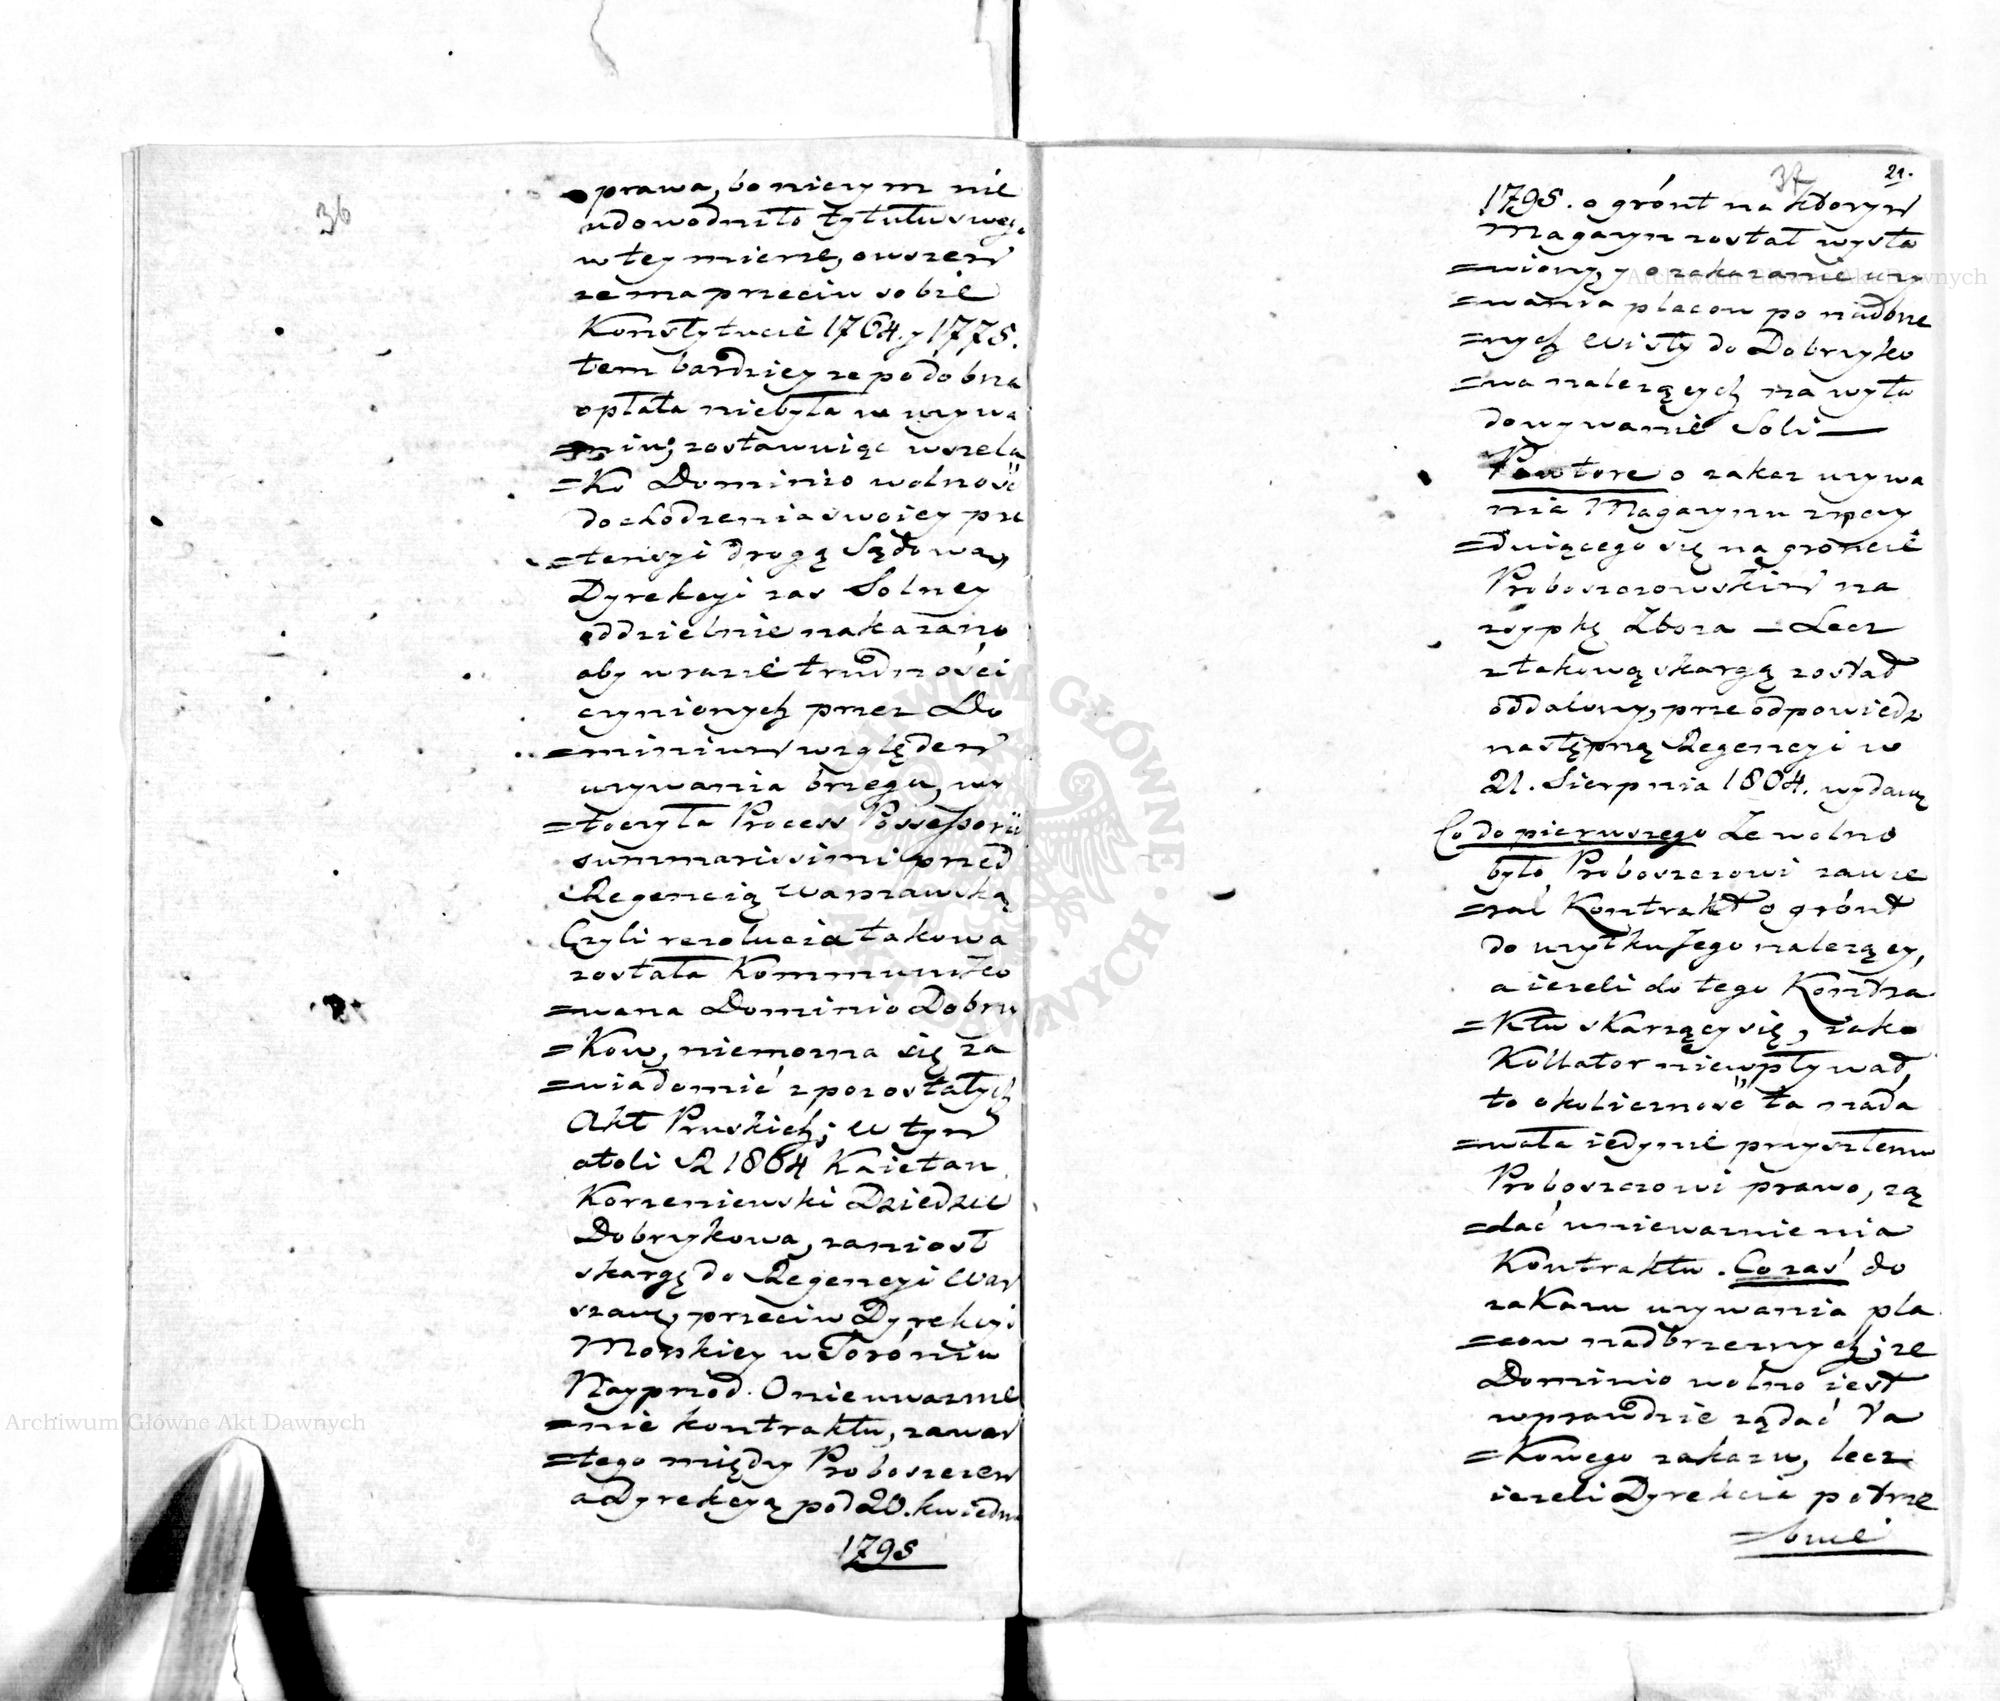 36
prawa, bo niczym nie
udowodniło tytułu sweg.
w tey mierze, owszem
ze ma przeciw sobie
Konstytucie 1764. y 1775.
tem bardziey ze podobna
opłata niebyła w używa
=niu; zostawuiąc wszela
=ko Dominio wolność
dochodzenia swoiey pre
=tensyi drogą Sądową,
Dyrekcyi zas Solney
oddzielnie nakazano
aby w razie trudności
czynionych przez Do
=minium względem
używania brzegu, wy
=toczyła Process Possessorii
summariissimi przed
Regencią Warszawską
Czyli rezolucia takowa
została Kommuniko
=wana Dominio Dobrzy
=ków, niemozna się za
=wiadomić z pozostałych
Akt Pruskich; w tym
atoli R 1804 Kaietan
Korzeniewski Dziedzic
Dobrzykowa, zaniosł
skargę do Regencyi War
szaws, przeciw Dyrekcyi
Morskiey w Toróniu
Nayprzód. O nieuwazne
=nie kontraktu, zawar
=tego między Proboszczem
a Dyrekcyą pod 20. kwietn
1795
37 21.
1795. o grónt na którym
Magazyn został wysta
=wiony, y o zakazanie uzy
=wania placow po nadbrze
=znych Wisły do Dobrzyko
=wa nalezących na wyła
dowywanie Soli —
Powtore o zakaz uzywa
nia Magazynu znay
=duiącego się na gróncie
Proboszczowskim na
zsypkę Zboza — Lecz
z takową skargą został
oddalony, prze odpowiedz
następną Regencyi w
21. Sierpnia 1804. wydaną
Co do pierwszego Ze wolno
było Proboszczowi zawie
=rać Kontrakt o grónt
do uzytku Jego nalezący,
a iezeli do tego Kontra
=ktu skarzący się, iako
Kollator niewpływał,
to okoliczność ta nada
=wała iedynie przyszłemu
Proboszczowi prawo, zą
=dać uniewaznienia
Kontraktu. Co zaś do
zakazu uzywania pla
=cow nadbrzeznych; ze
Dominio wolno iest
wprawdzie ządać ta
=kowego zakazu, lecz
iezeli Dyrekcia potrze
=buie
Archiwum Główne Akt Dawnych
Archiwum Główne Akt Dawnych
ARCHIWUM GŁÓWNE AKT DAWNYCH